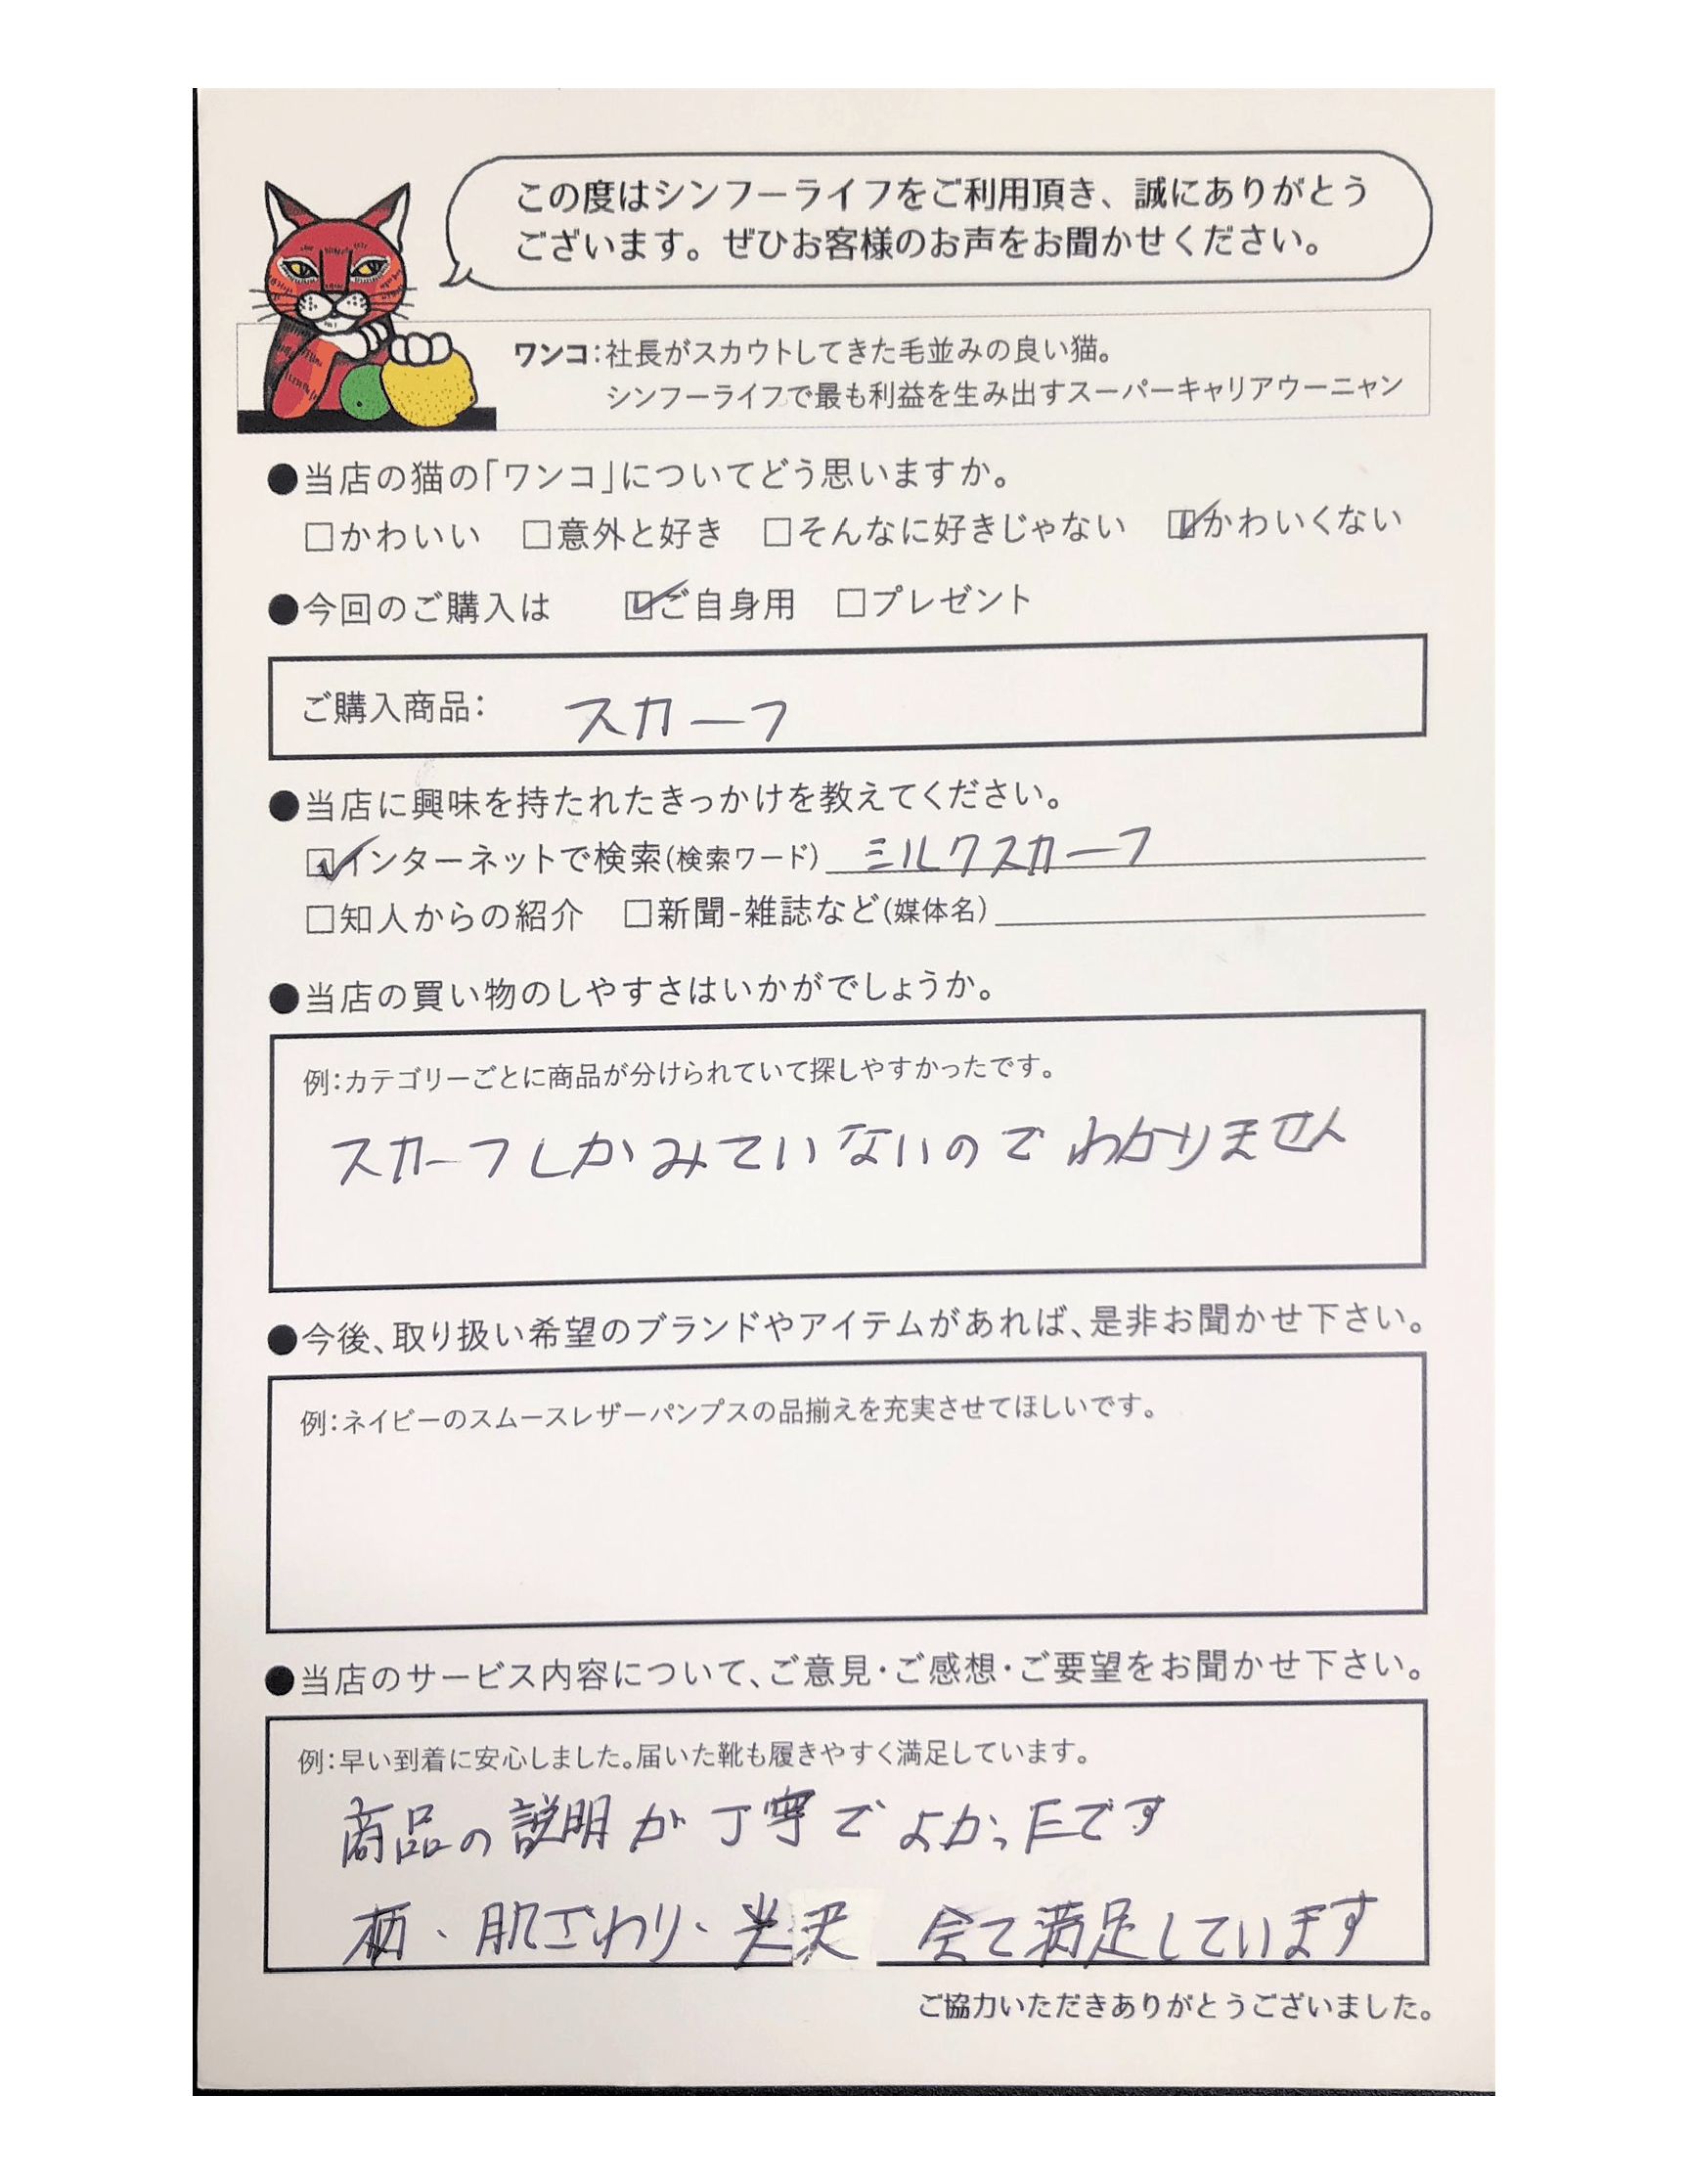 この度はシンフーライフをご利用頂き、誠にありがとう
ございます。ぜひお客様のお声をお聞かせください。
ワンコ：社長がスカウトしてきた毛並みの良い猫。
シンフーライフで最も利益を生み出すスーパーキャリアウーニャン
●当店の猫の「ワンコ」についてどう思いますか。
□かわいい □意外と好き □そんなに好きじゃない ☑かわいくない
●今回のご購入は ☑ご自身用 □プレゼント
ご購入商品： スカーフ
●当店に興味を持たれたきっかけを教えてください。
☑インターネットで検索(検索ワード) ミルクスカーフ
□知人からの紹介 □新聞-雑誌など(媒体名)
●当店の買い物のしやすさはいかがでしょうか。
例：カテゴリーごとに商品が分けられていて探しやすかったです。
スカーフしかみていないのでわかりません
●今後、取り扱い希望のブランドやアイテムがあれば、是非お聞かせ下さい。
例：ネイビーのスムースレザーパンプスの品揃えを充実させてほしいです。
●当店のサービス内容について、ご意見・ご感想・ご要望をお聞かせ下さい。
例：早い到着に安心しました。届いた靴も履きやすく満足しています。
商品の説明が丁寧でよかったです
柄、肌ざわり、光沢 全て満足しています
ご協力いただきありがとうございました。